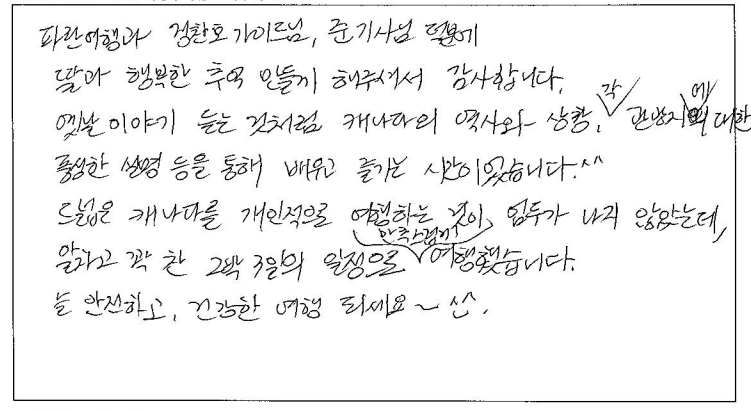 파란여행과 정찬호 가이드님, 준기사님 덕분에
딸과 행복한 추억 만들게 해주셔서 감사합니다.
옛날 이야기 듣는 것처럼 캐나다의 역사와 상황, 각 관광지에 대한
풍성한 설명 등을 통해 배우고 즐기는 시간이었습니다.^^
드넓은 캐나다를 개인적으로 여행하는 것이 엄두가 나지 않았는데,
알차고 꽉 찬 2박 3일의 일정으로 만족스럽게 여행했습니다.
늘 안전하고, 건강한 여행 되세요~ ^^.